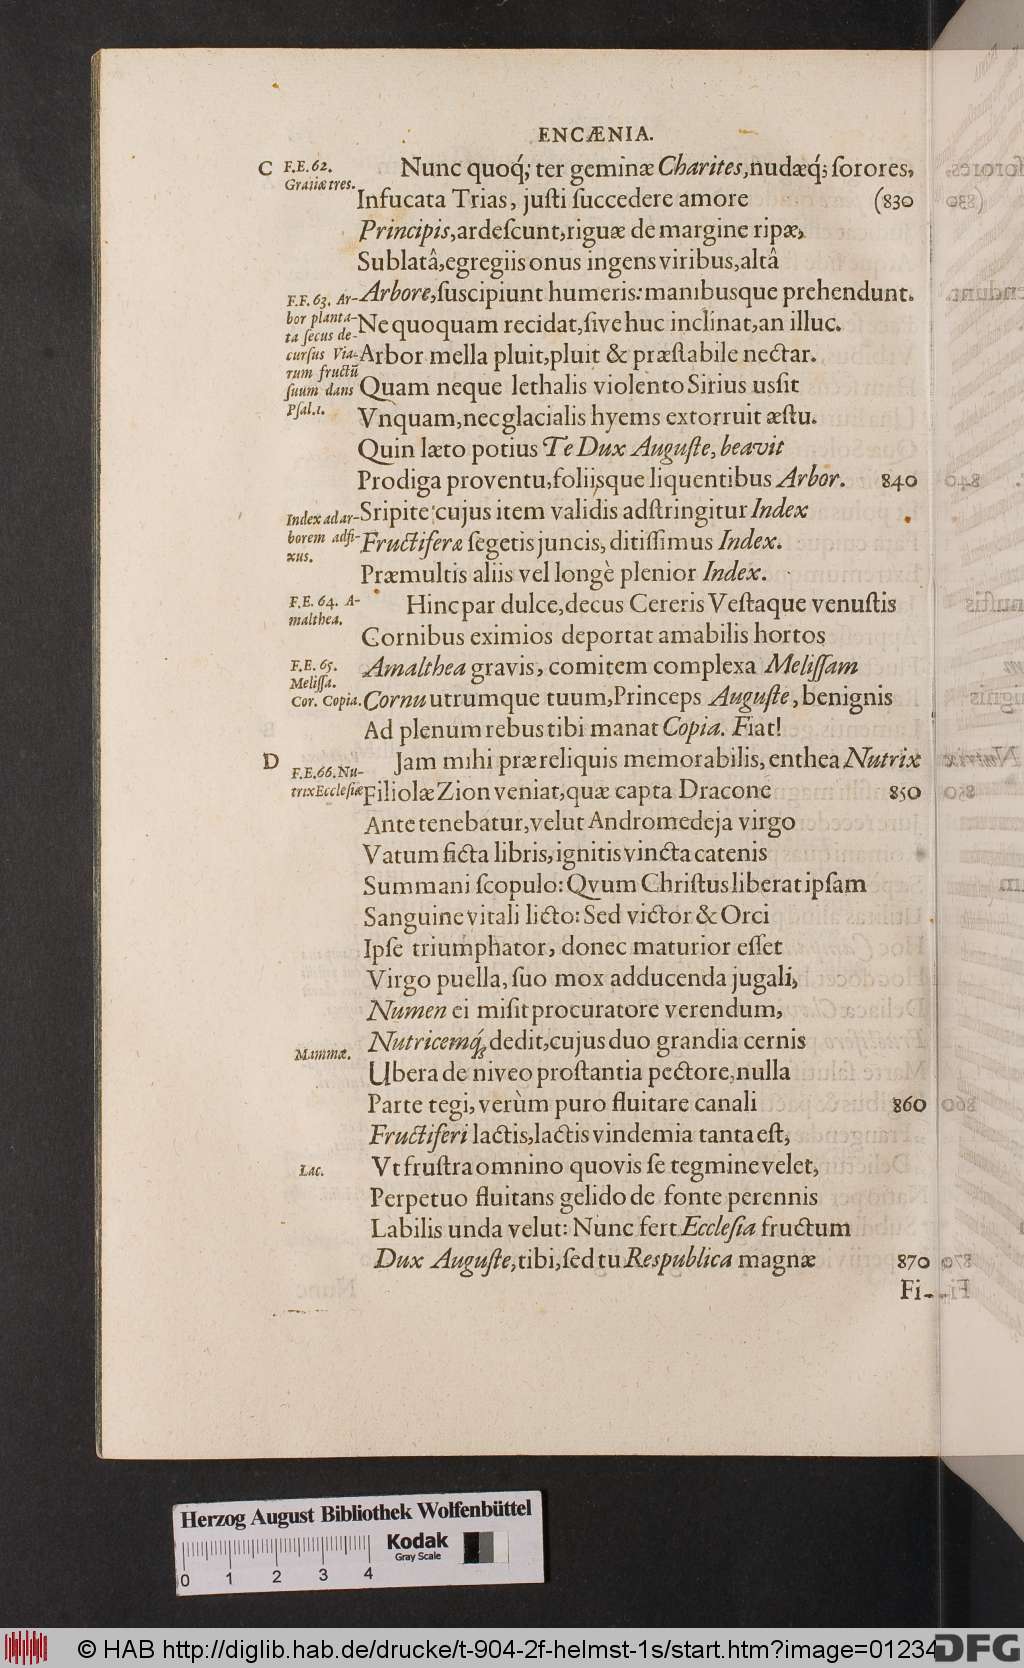 ENCÆNIA.
C F.E. 62. Gratiæ tres.
Nunc quoq́; ter geminæ Charites, nudæq́; ſorores,
Infucata Trias, juſti ſuccedere amore (830
Principis, ardeſcunt, riguæ de margine ripæ,
Sublatâ, egregiis onus ingens viribus, altâ
F.F. 63. Ar-
Arbore, ſuscipiunt humeris: manibusque prehendunt.
bor planta-
Ne quoquam recidat, ſive huc inclinat, an illuc.
ta ſecus de-
curſus Via-
Arbor mella pluit, pluit & præſtabile nectar.
rum fructū
ſuum dans
Quam neque lethalis violento Sirius usſit
Pſal. 1.
Vnquam, nec glacialis hyems extorruit æſtu.
Quin læto potius Te Dux Auguſte, beavit
Prodiga proventu, foliisque liquentibus Arbor. 840
Index ad ar-
Sripite cujus item validis adſtringitur Index
borem adfi-
Fructiferæ ſegetis juncis, ditiſſimus Index.
xus.
Præmultis aliis vel longè plenior Index.
F.E. 64. A-
malthea.
Hinc par dulce, decus Cereris Veſtaque venuſtis
Cornibus eximios deportat amabilis hortos
F.E. 65.
Meliſſa.
Amalthea gravis, comitem complexa Meliſſam
Cor. Copia.
Cornu utrumque tuum, Princeps Auguſte, benignis
Ad plenum rebus tibi manat Copia. Fiat!
D F.E. 66. Nu-
Jam mihi præ reliquis memorabilis, enthea Nutrix
trix Eccleſiæ
Filiolæ Zion veniat, quæ capta Dracone 850
Ante tenebatur, velut Andromedeja virgo
Vatum ficta libris, ignitis vincta catenis
Summani ſcopulo: Qvum Chriſtus liberat ipſam
Sanguine vitali licto: Sed victor & Orci
Ipſe triumphator, donec maturior eſſet
Virgo puella, ſuo mox adducenda jugali,
Numen ei miſit procuratore verendum,
Nutricemq́; dedit, cujus duo grandia cernis
Mammæ.
Ubera de niveo proſtantia pectore, nulla
Parte tegi, verùm puro fluitare canali 860
Fructiferi lactis, lactis vindemia tanta eſt,
Lac.
Vt fruſtra omnino quovis ſe tegmine velet,
Perpetuo fluitans gelido de fonte perennis
Labilis unda velut: Nunc fert Eccleſia fructum
Dux Auguſte, tibi, ſed tu Respublica magnæ 870
Fi-
Herzog August Bibliothek Wolfenbüttel
Kodak
Gray Scale
0 1 2 3 4
© HAB http://diglib.hab.de/drucke/t-904-2f-helmst-1s/start.htm?image=01234
DFG